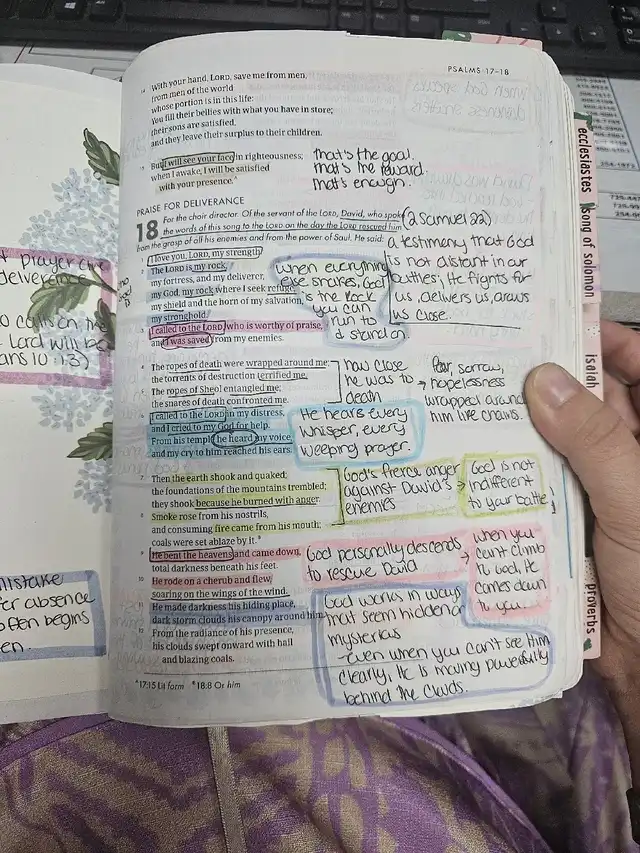 PSALMS 17–18
14 With your hand, LORD, save me from men,
from men of the world
whose portion is in this life:
You fill their bellies with what you have in store;
their sons are satisfied,
and they leave their surplus to their children.
15 But I will see your face in righteousness;
when I awake, I will be satisfied
with your presence.ᴬ
that's the goal.
that's the reward.
that's enough.
PRAISE FOR DELIVERANCE
18 For the choir director. Of the servant of the LORD, David, who spoke
the words of this song to the LORD on the day the LORD rescued him
from the grasp of all his enemies and from the power of Saul. He said:
(2 Samuel 22)
a testimony that God
is not distant in our
battles; He fights for
us, delivers us, draws
us close.
I love you, LORD, my strength.
2 The LORD is my rock,
my fortress, and my deliverer,
my God, my rock where I seek refuge,
my shield and the horn of my salvation,
my stronghold.
3 I called to the LORD, who is worthy of praise,
and I was saved from my enemies.
when everything
else shakes, God
is the Rock
you can
run to
& stand on
4 The ropes of death were wrapped around me;
the torrents of destruction terrified me.
5 The ropes of Sheol entangled me;
the snares of death confronted me.
how close
he was to
death
→ Fear, sorrow,
hopelessness
wrapped around
him like chains.
6 I called to the LORD in my distress,
and I cried to my God for help.
From his temple he heard my voice,
and my cry to him reached his ears.
He hears every
whisper, every
weeping prayer.
7 Then the earth shook and quaked;
the foundations of the mountains trembled;
they shook because he burned with anger.
8 Smoke rose from his nostrils,
and consuming fire came from his mouth;
coals were set ablaze by it.ᴮ
God's fierce anger
against David's →
enemies
God is not
indifferent
to your battle!
9 He bent the heavens and came down,
total darkness beneath his feet.
10 He rode on a cherub and flew,
soaring on the wings of the wind.
11 He made darkness his hiding place,
dark storm clouds his canopy around him.
12 From the radiance of his presence,
his clouds swept onward with hail
and blazing coals.
God personally descends →
to rescue David
when you
can't climb
to God, He
comes down
to you.
God works in ways
that seem hidden or
mysterious
- even when you can't see Him
clearly, He is moving powerfully
behind the clouds.
ᴬ 17:15 Lit form ᴮ 18:8 Or him
ecclesiastes
song of solomon
isaiah
proverbs
prayer
deliverance
LORD will be
10:13)
mistake
absence
often begins